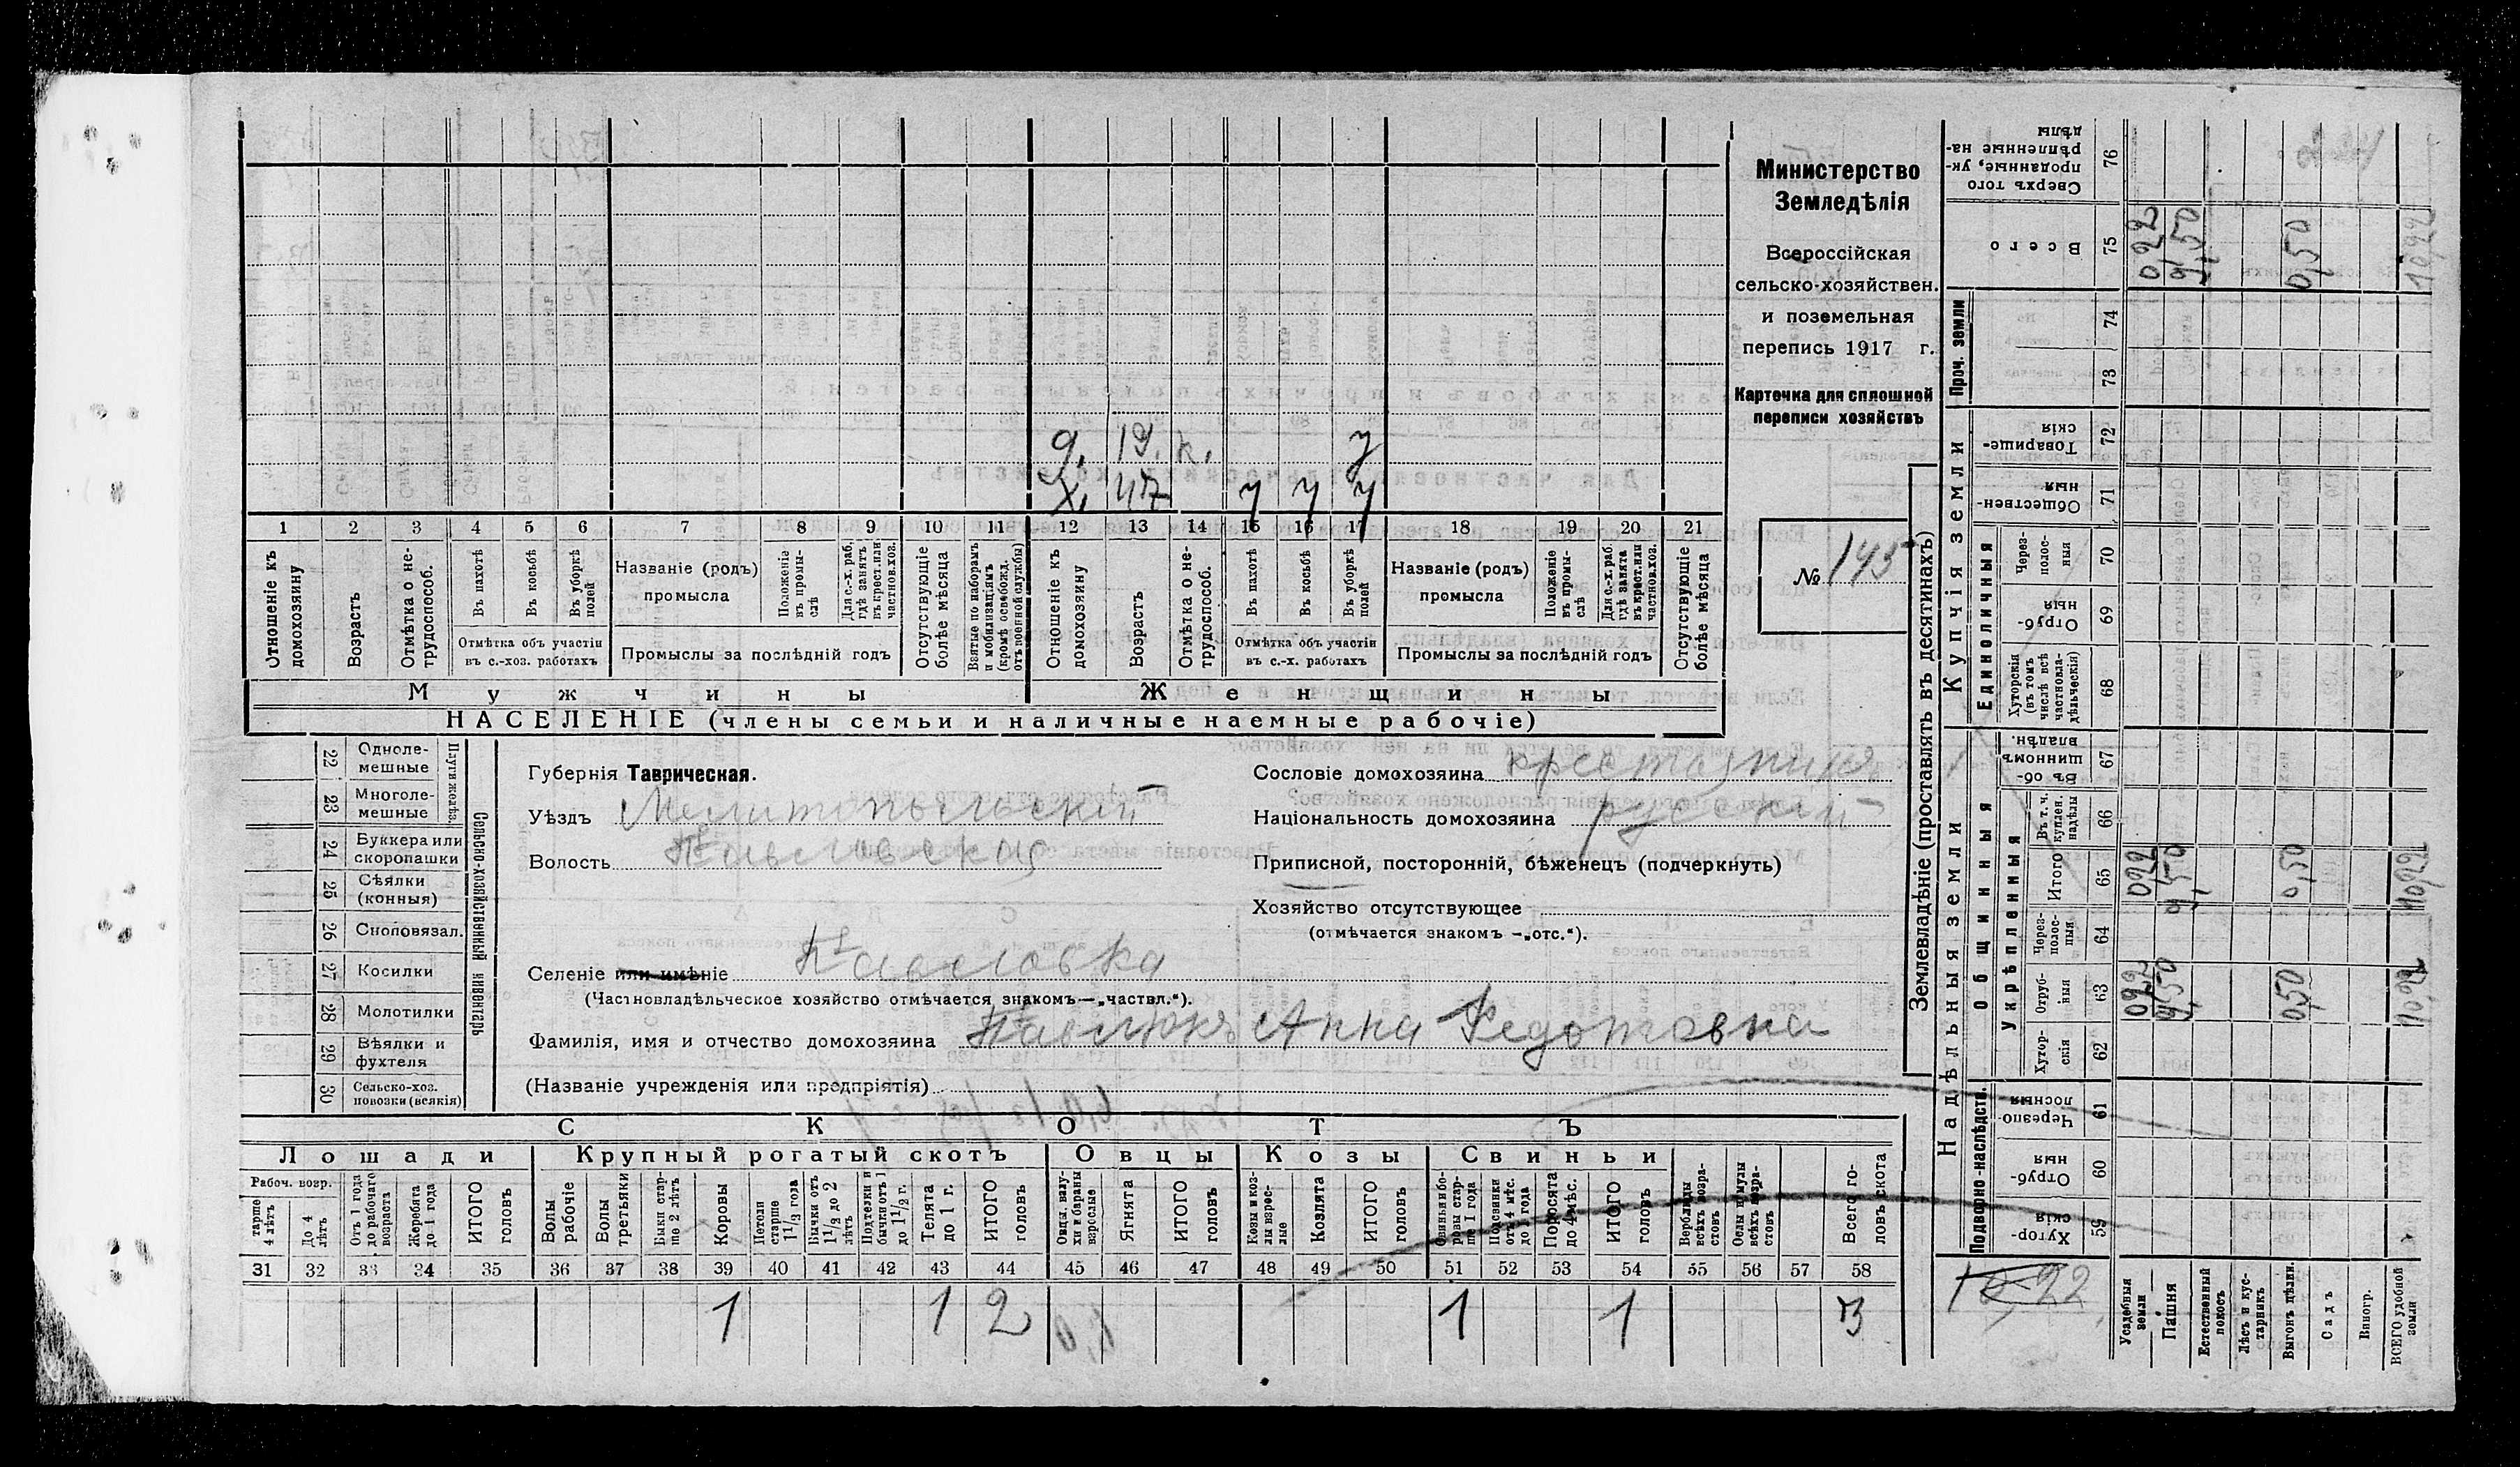 Министерство
Земледѣлія
Всероссійская
сельско-хозяйствен.
и поземельная
перепись 1917 г.
Карточка для сплошной
переписи хозяйствъ
№ 145
д. 19. к. у
х. 47 у у у
1 2 3 4 5 6 7 8 9 10 11 12 13 14 15 16 17 18 19 20 21
Отношеніе къ домохозяину
Возрастъ
Отмѣтка о нетрудоспособ.
Въ пахотѣ
Въ косьбѣ
Въ уборкѣ полей
Отмѣтка объ участіи въ с.-хоз. работахъ
Названіе (родъ) промысла
Положеніе въ промыслѣ
Для с.-х. раб. гдѣ занятъ въ крест. или частнов. хоз.
Промыслы за послѣдній годъ
Отсутствующіе болѣе мѣсяца
Взятые по наборамъ и мобилизаціямъ (кромѣ освобожд. отъ военной службы)
Отношеніе къ домохозяину
Возрастъ
Отмѣтка о нетрудоспособ.
Въ пахотѣ
Въ косьбѣ
Въ уборкѣ полей
Отмѣтка объ участіи въ с.-х. работахъ
Названіе (родъ) промысла
Положеніе въ промыслѣ
Для с.-х. раб. гдѣ занята въ крест. или частнов. хоз.
Промыслы за послѣдній годъ
Отсутствующіе болѣе мѣсяца
Мужчины Женщины
НАСЕЛЕНІЕ (члены семьи и наличные наемные рабочіе)
22 Одноле-мешные
23 Многоле-мешные
Плуги желѣз.
24 Буккера или скоропашки
25 Сѣялки (конныя)
26 Сноповязал.
27 Косилки
28 Молотилки
29 Вѣялки и фухтеля
30 Сельско-хоз. повозки (всякія)
Сельско-хозяйственный инвентарь
Губернія Таврическая.
Уѣздъ Мелитопольскій
Волость Павловская
Селеніе или имѣніе Павловка
(Частновладѣльческое хозяйство отмѣчается знакомъ—„частвл.“).
Фамилія, имя и отчество домохозяина Павлюкъ Анна Федотовна
(Названіе учрежденія или предпріятія)
Сословіе домохозяина крестьянка
Національность домохозяина русскій
Приписной, посторонній, бѣженецъ (подчеркнуть)
Хозяйство отсутствующее
(отмѣчается знакомъ –„отс.“).
СКОТЪ
Лошади Крупный рогатый скотъ Овцы Козы Свиньи
Рабоч. возр.
тарше 4 лѣтъ
До 4 лѣтъ
Отъ 1 года до рабочаго возраста
Жеребята до 1 года
ИТОГО головъ
Волы рабочіе
Волы третьяки
Быки старше 2 лѣтъ
Коровы
Нетели старше 1 1/2 года
Бычки отъ 1 1/2 до 2 лѣтъ
Подтелки и бычки отъ 1 до 1 1/2 г.
Телята до 1 г.
ИТОГО головъ
Овцы, валухи и бараны взрослые
Ягнята
ИТОГО головъ
Козы и козлы взрослые
Козлята
ИТОГО головъ
Свиньи боровы старше 1 года
Подсвинки отъ 4 мѣс. до 1 года
Поросята до 4 мѣс.
ИТОГО головъ
Верблюды всѣхъ возрастовъ
Ослы и мулы всѣхъ возрастовъ
Всего головъ скота
31 32 33 34 35 36 37 38 39 40 41 42 43 44 45 46 47 48 49 50 51 52 53 54 55 56 57 58
1 1 2 1 1 3
Землевладѣніе (проставлять въ десятинахъ)
Надѣльныя земли
Купчія земли
Проч. земли
Подворно-наслѣдств.
Общинныя
Укрѣпленныя
Единоличныя
Сверхъ того проданные, укрѣпленные надѣлы 76
Всего 75 0,22 9,50 0,50 10,22
74
73
Товарищескія 72
Общественныя 71
Черезполосныя 70
Отрубныя 69
Хуторскія (въ томъ числѣ всѣ частновладѣльческія) 68
Въ общинномъ владѣн. 67
Въ т. ч. куплен. надѣлы 66
Итого 65 022 9,50 0,50 10,22
Черезполосныя 64
Отрубныя 63 022 9,50 0,50 10,22
Хуторскія 62
Черезполосныя 61
Отрубныя 60
Хуторскія 59
Усадебныя земли
Пашня
Естественный покосъ
Лѣсъ и кустарникъ
Выгонъ цѣлин.
Садъ
Виногр.
ВСЕГО удобной земли